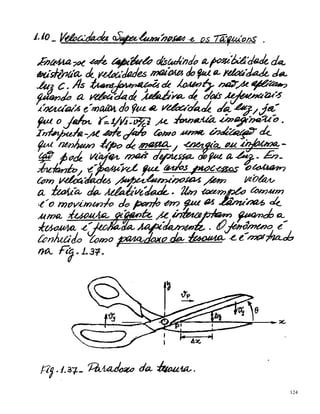 1.10_ Velocidades Superluminosas e os Táquions.
Encerra-se este Capítulo discutindo a possibilidade da
existência de velocidades maiores do que a velocidade da
luz C. As transformações de Lorentz não se aplicam
quando a velocidade relativa de dois referenciais
inerciais é maior do que a velocidade da luz, já
que o fator γ=1/√1-v²/c² se tornaria imaginário.
Interpreta-se este fato como uma indicação de
que nenhum tipo de massa, energia ou informa-
ção pode viajar mais depressa do que a luz. En-
tretanto, é possível que certos processos ocorram
com velocidades superluminosas sem violar
a teoria da relatividade. Um exemplo comum
é o movimento do ponto em que as lâminas de
uma tesoura gigante se interceptam quando a
tesoura é fechada rapidamente. O fenômeno é
conhecido como paradoxo da tesoura e é mostrado
na Fig. 1.37.
y
vp
θ
P
Δy
x
Δx
Fig. 1.37_ Paradoxo da tesoura.
124